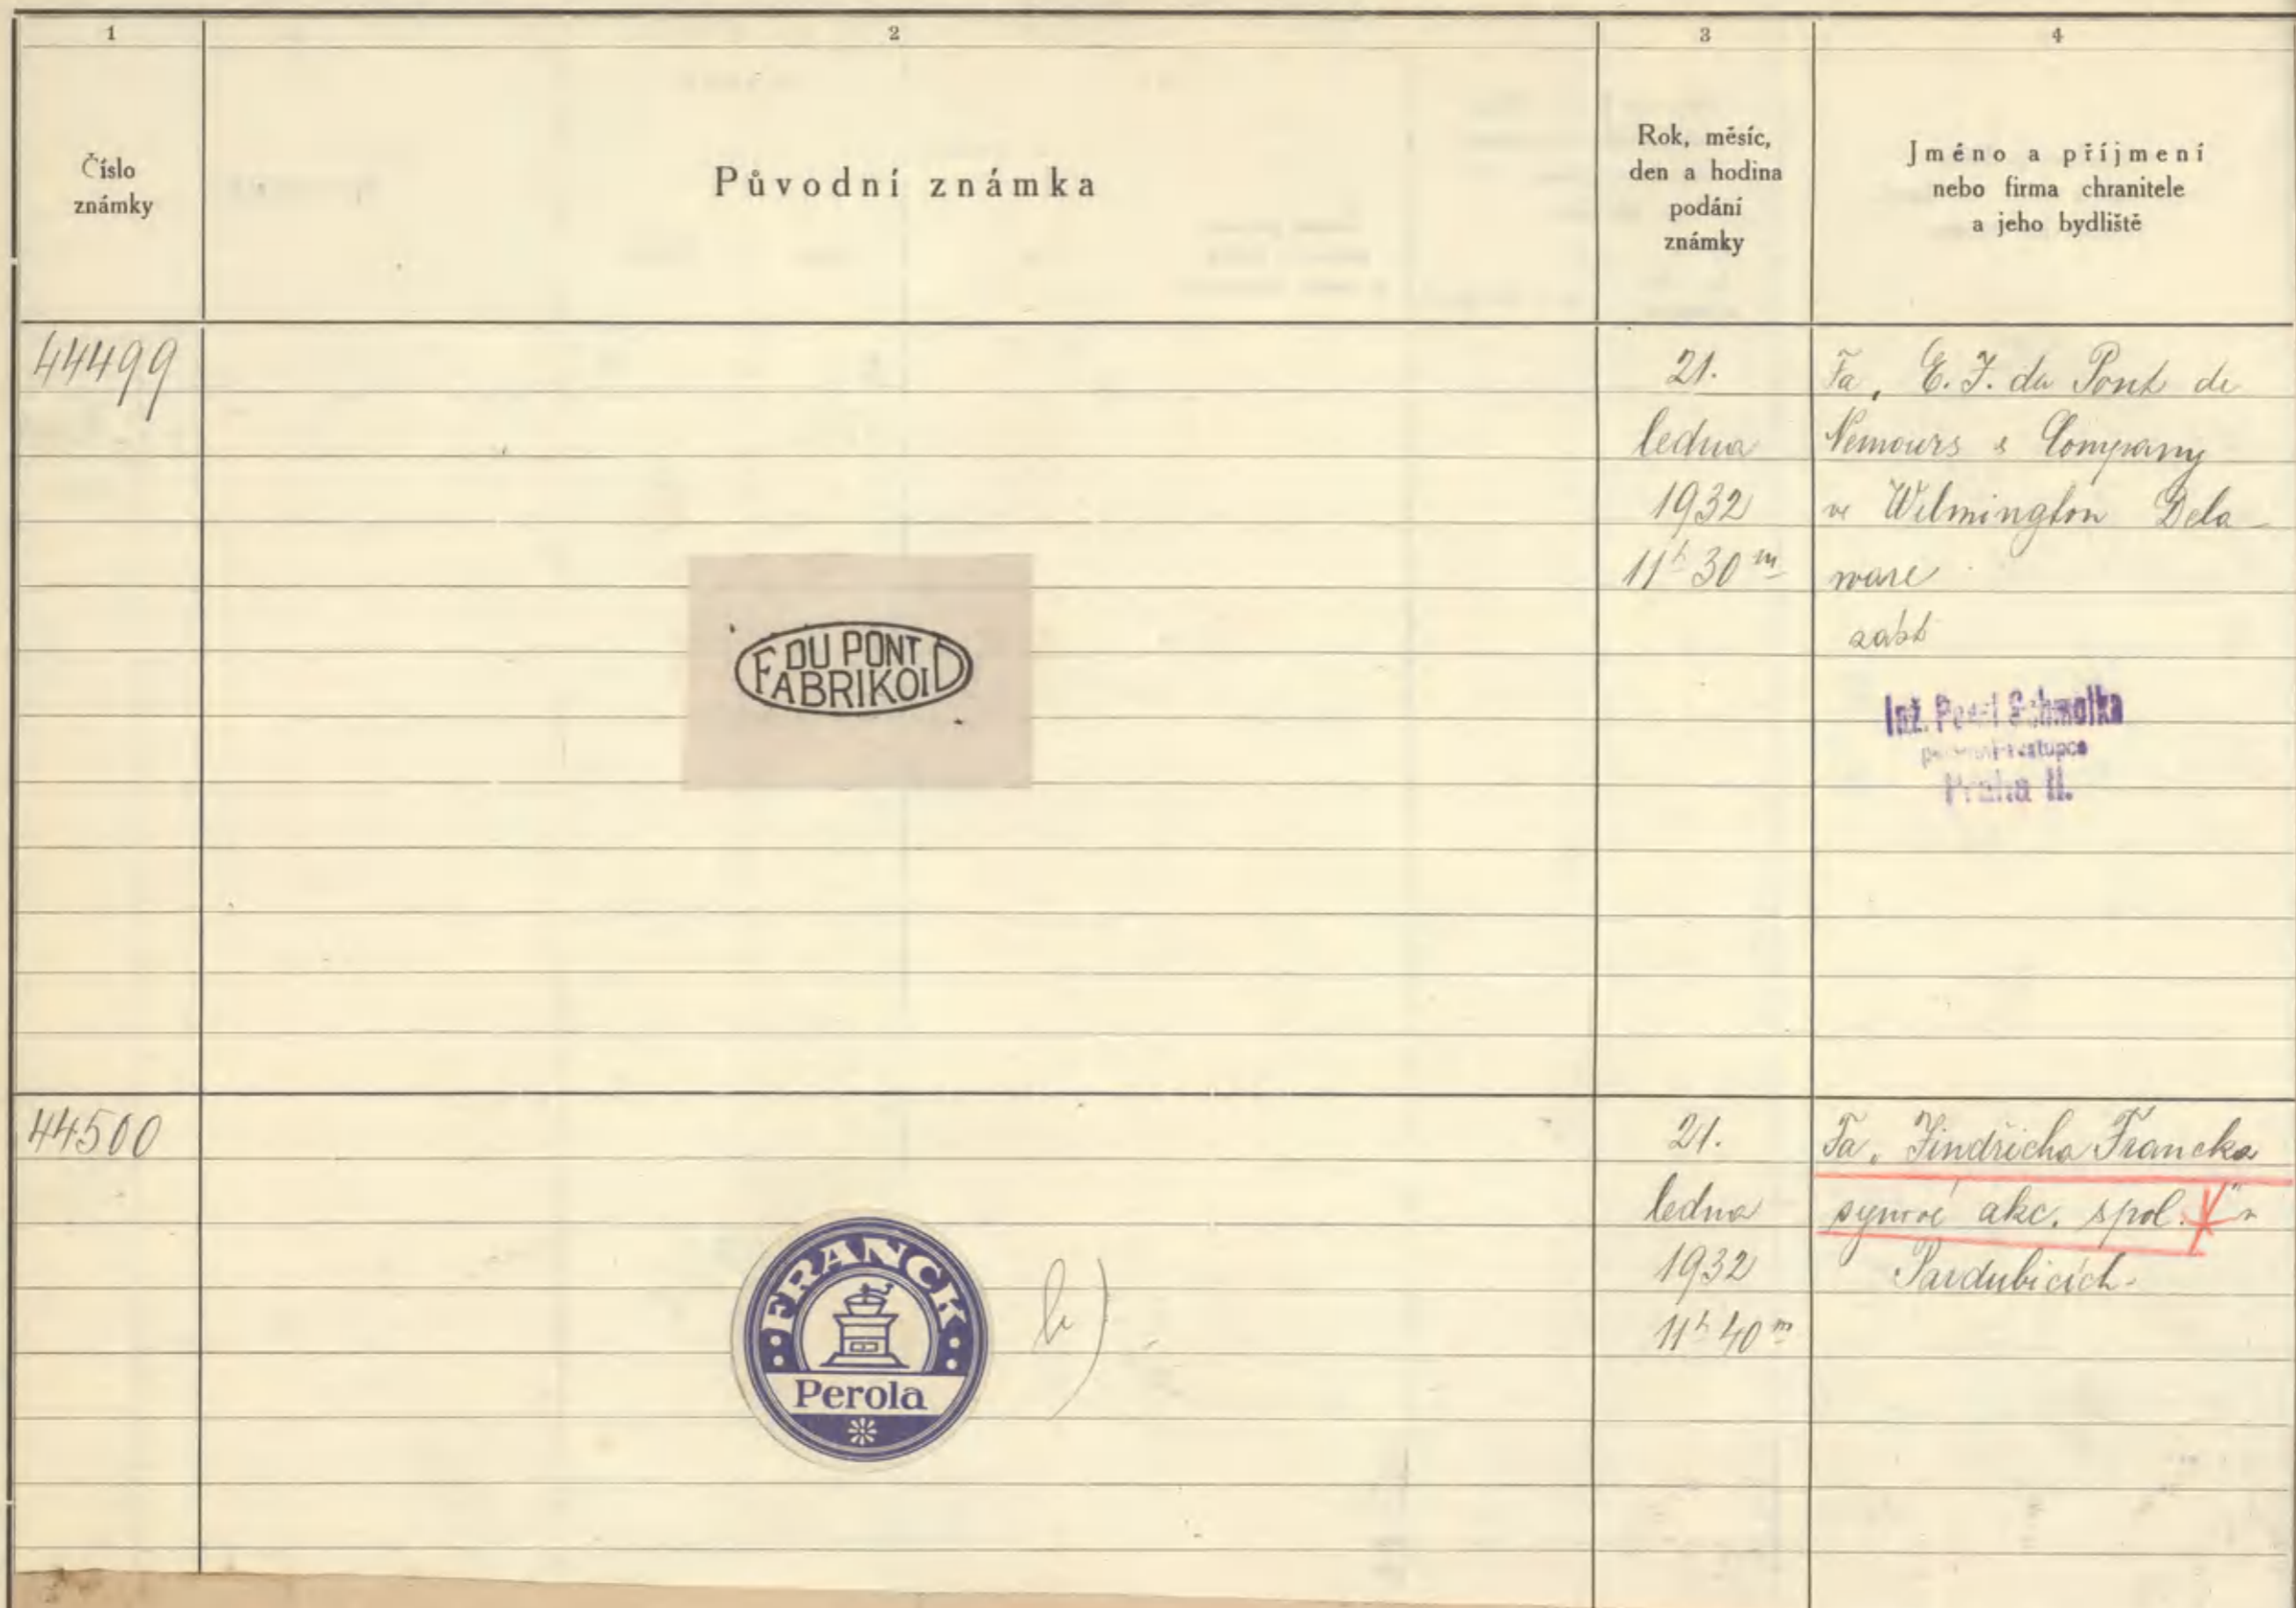 1
2
3
4
Číslo
známky
Původní známka
Rok, měsíc,
den a hodina
podání
známky
Jméno a příjmení
nebo firma chranitele
a jeho bydliště
44499
DU PONT
FABRIKOID
21.
ledna
1932
11h 30m
Fa, E. I. du Pont de
Nemours & Company
ve Wilmington Dela-
ware
zást
Inž. Pavel Schmolka
patentní zástupce
Praha II.
44500
FRANCK
Perola
b)
21.
ledna
1932
11h 40m
Fa. Jindřicha Francka
synové akc. spol. v
Pardubicích.